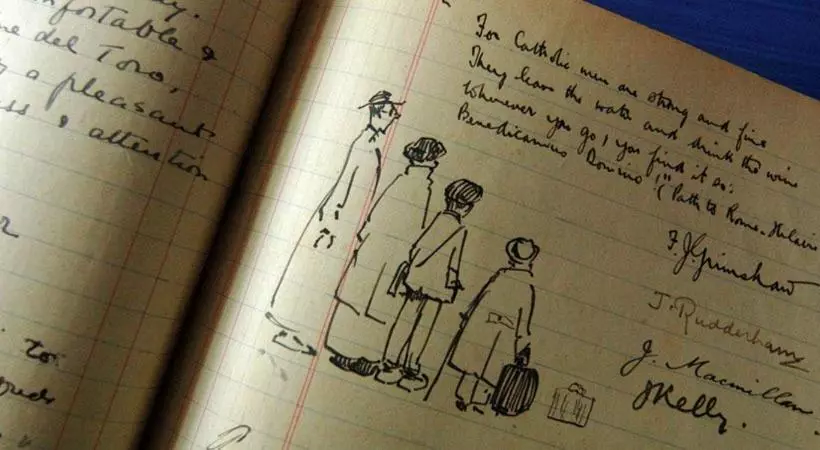 ay.
nfortable &
ne del Toro,
a pleasant
ss & attention
to
For Catholic men are strong and fine
They leave the water and drink the wine
Wherever you go, you find it so:
Benedicamus Domino!" (Path to Rome. Hilaire
F. J. Grimshaw
J. Rudderham
J. Macmillan.
J Kelly.